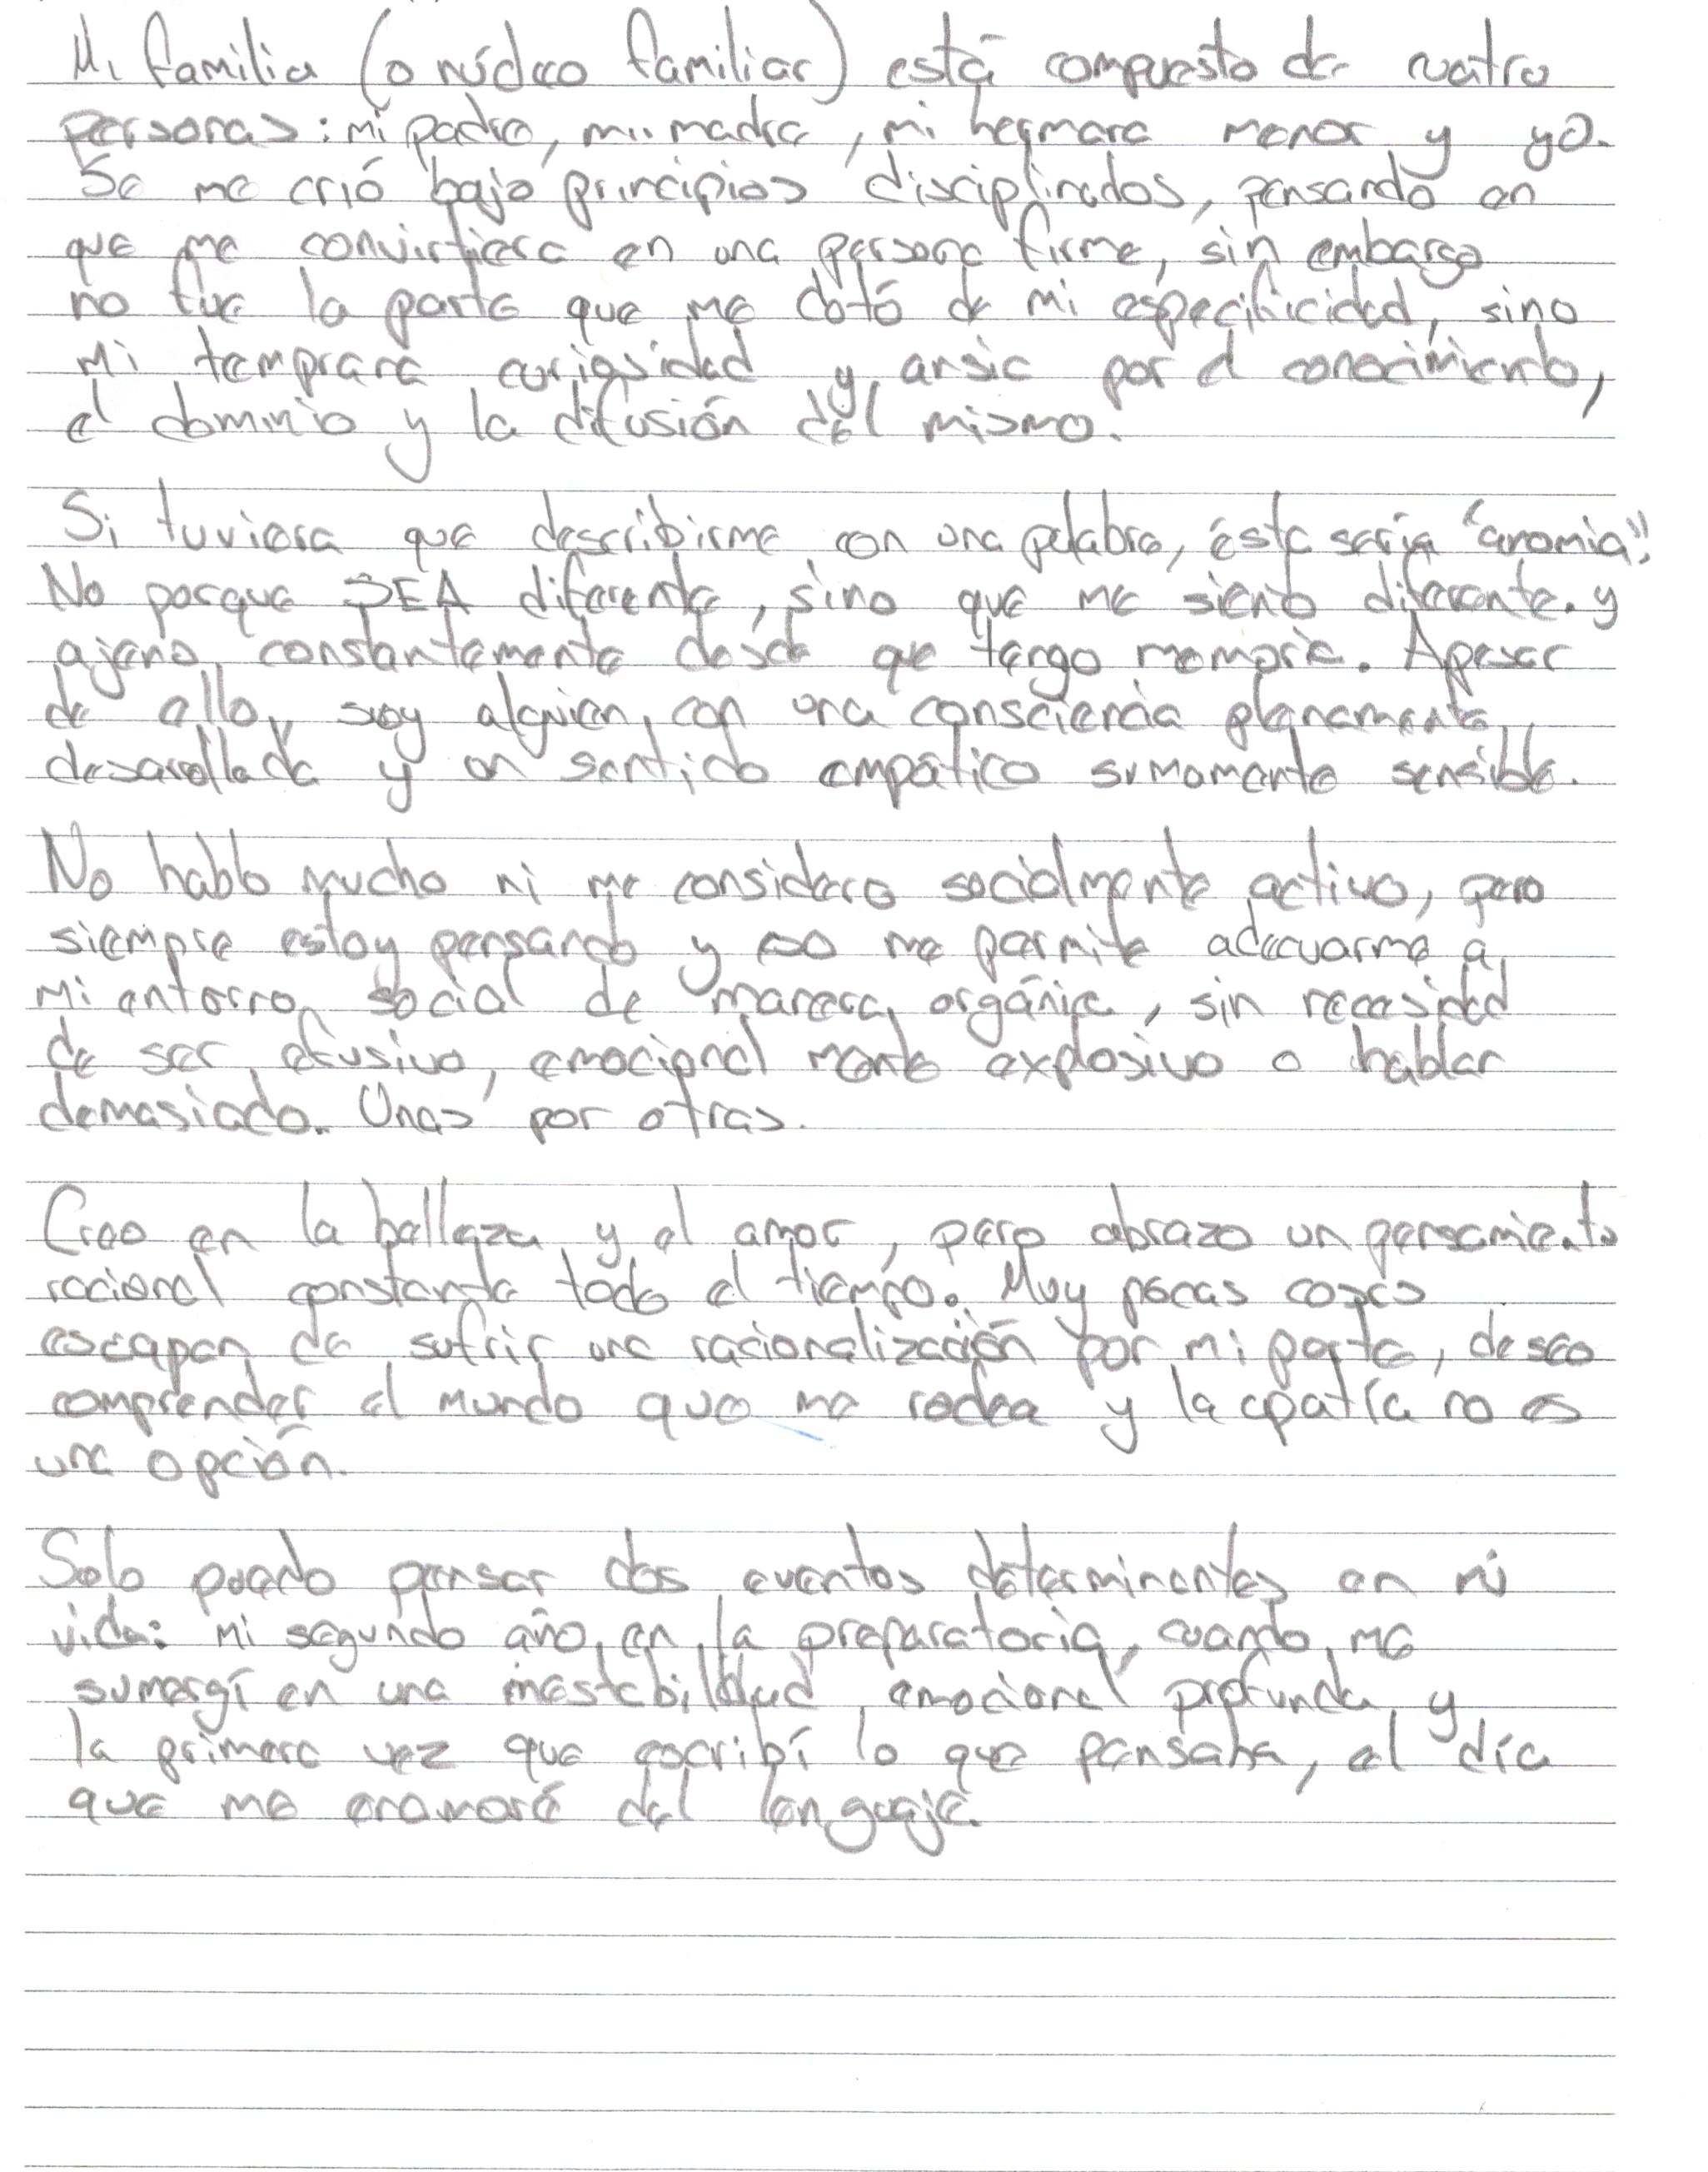 Mi familia (o núcleo familiar) está compuesto de cuatro
personas: mi padre, mi madre, mi hermana menor y yo.
Se me crió bajo principios disciplinados, pensando en
que me convirtiera en una persona firme, sin embargo
no fue la parte que me dotó de mi especificidad, sino
mi temprana curiosidad y ansia por el conocimiento,
el dominio y la difusión del mismo.
Si tuviera que describirme con una palabra, ésta sería "anomia".
No porque SEA diferente, sino que me siento diferente y
ajeno, constantemente desde que tengo memoria. Apesar
de ello, soy alguien con una consciencia plenamente
desarollada y un sentido empático sumamente sensible.
No hablo mucho ni me considero socialmente activo, pero
siempre estoy pensando y eso me permite adecuarme a
mi entorno social de manera orgánica, sin necesidad
de ser efusivo, emocional mente explosivo o hablar
demasiado. Unas por otras.
Creo en la belleza y el amor, pero abrazo un pensamiento
racional constante todo el tiempo. Muy pocas cosas
escapan de sufrir una racionalización por mi parte, deseo
comprender el mundo que me rodea y la apatía no es
una opción.
Solo puedo pensar dos eventos determinantes en mi
vida: mi segundo año en la preparatoria, cuando me
sumergí en una inestabilidad emocional profunda y
la primera vez que escribí lo que pensaba, el día
que me enamoré del lenguaje.